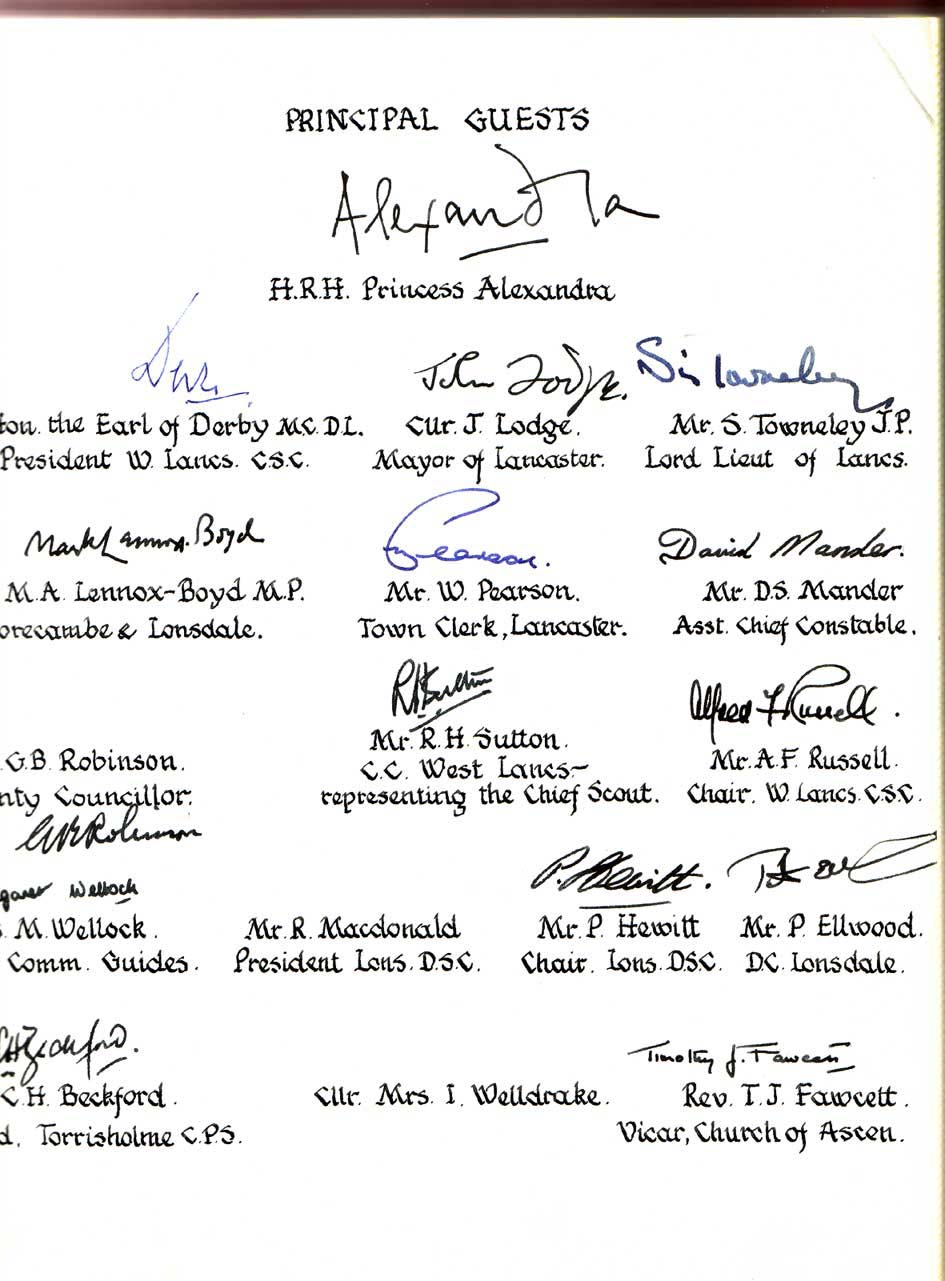 PRINCIPAL GUESTS
Alexandra
H.R.H. Princess Alexandra
Derby John Lodge.
the Earl of Derby M.C. D.L. Cllr. J. Lodge. Mr. S. Towneley J.P.
President W. Lancs. C.S.C. Mayor of Lancaster. Lord Lieut of Lancs.
Mark Lennox-Boyd Pearson. David Mander.
M.A. Lennox-Boyd M.P. Mr. W. Pearson. Mr. D.S. Mander
orecambe & Lonsdale. Town Clerk, Lancaster. Asst. Chief Constable.
RHSutton Alfred F Russell.
Mr. R.H. Sutton.
G.B. Robinson. C.C. West Lancs- Mr. A.F. Russell.
nty Councillor. representing the Chief Scout. Chair. W. Lancs. C.S.C.
GBRobinson
garet Wellock P. Hewitt.
M. Wellock. Mr. R. Macdonald Mr. P. Hewitt Mr. P. Ellwood.
Comm. Guides. President Lons. D.S.C. Chair. Lons. D.S.C. D.C. Lonsdale.
CHBeckford. Timothy J. Fawcett
C.H. Beckford. Cllr. Mrs. I. Welldrake. Rev. T.J. Fawcett.
d. Torrisholme C.P.S. Vicar, Church of Ascen.